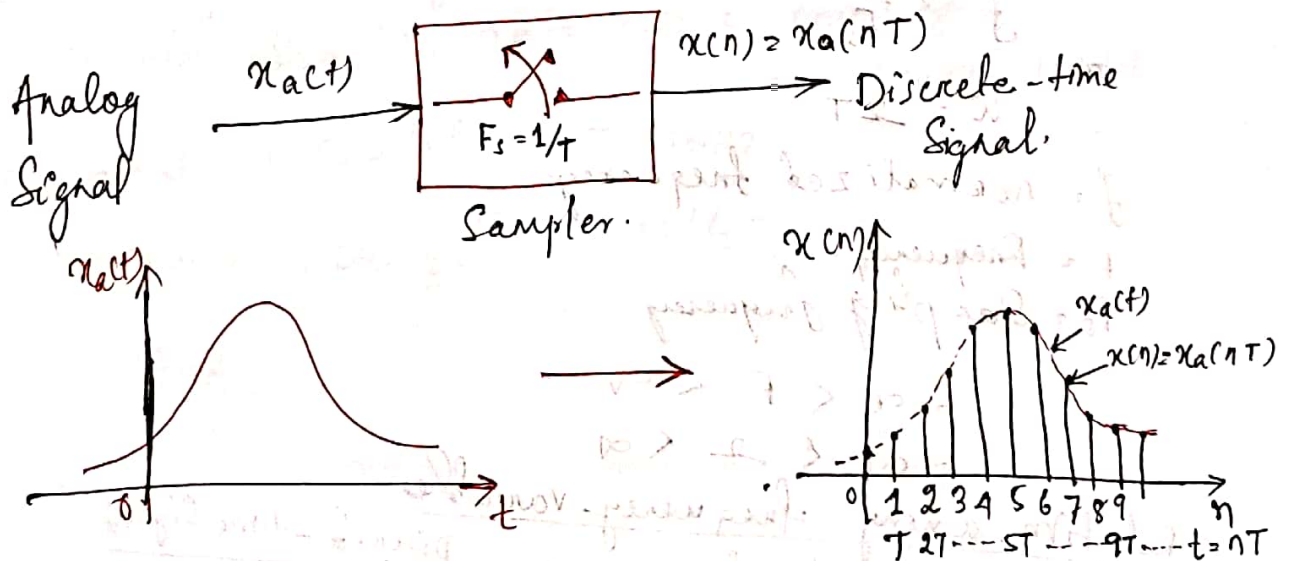 Analog
Signal
xa(t)
Fs = 1/T
Sampler.
x(n) = xa(nT)
Discrete-time
Signal.
xa(t)
0
t
x(n)
xa(t)
x(n)=xa(nT)
0 1 2 3 4 5 6 7 8 9 n
T 2T---- 5T ---- 9T---- t=nT